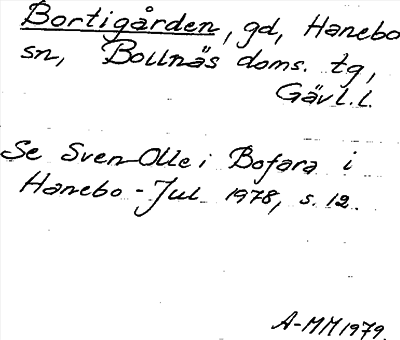 Bortigården, gd, Hanebo
sn, Bollnäs doms. tg,
Gävl.l.
Se Sven-Olle i Bofara i
Hanebo - Jul 1978, s. 12.
A-MM 1979.